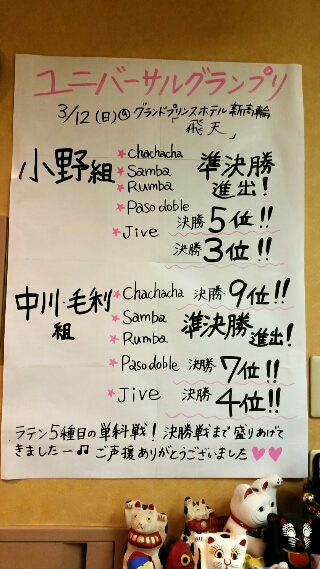 ユニバーサルグランプリ
3/12(日)@グランドプリンスホテル新高輪
「飛天」
小野組
★Chachacha
★Samba
★Rumba
準決勝
進出!
★Paso doble 決勝5位!!
★Jive 決勝3位!!
中川・毛利
組
★Chachacha 決勝9位!!
★Samba
★Rumba
準決勝進出!
★Paso doble 決勝7位!!
★Jive 決勝4位!!
ラテン5種目の単科戦! 決勝戦まで盛りあげて
きましたー♫ ご声援ありがとうございました♥♥